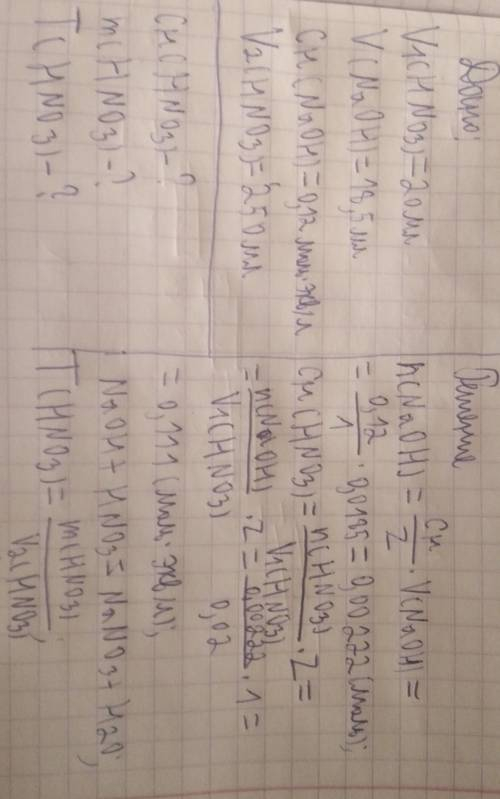 Дано:
V1(HNO3)=20мл
V(NaOH)=18,5мл
Cн(NaOH)=0,12 мль·экв/л
V2(HNO3)=250мл
Cн(HNO3)-?
m(HNO3)-?
T(HNO3)-?
Решение
n(NaOH) = Cн/Z · V(NaOH) =
= 0,12/1 · 0,0185 = 0,00222(моль);
Cн(HNO3) = n(HNO3)/V1(HNO3) · Z =
= n(NaOH)/V1(HNO3) · Z = 0,00222/0,02 · 1 =
= 0,111 (моль·экв/л);
NaOH + HNO3 = NaNO3 + H2O;
T(HNO3) = m(HNO3)/V2(HNO3);